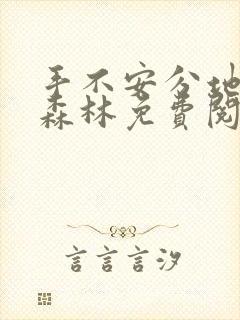 手不安分地
森林免费阅
言言言汐